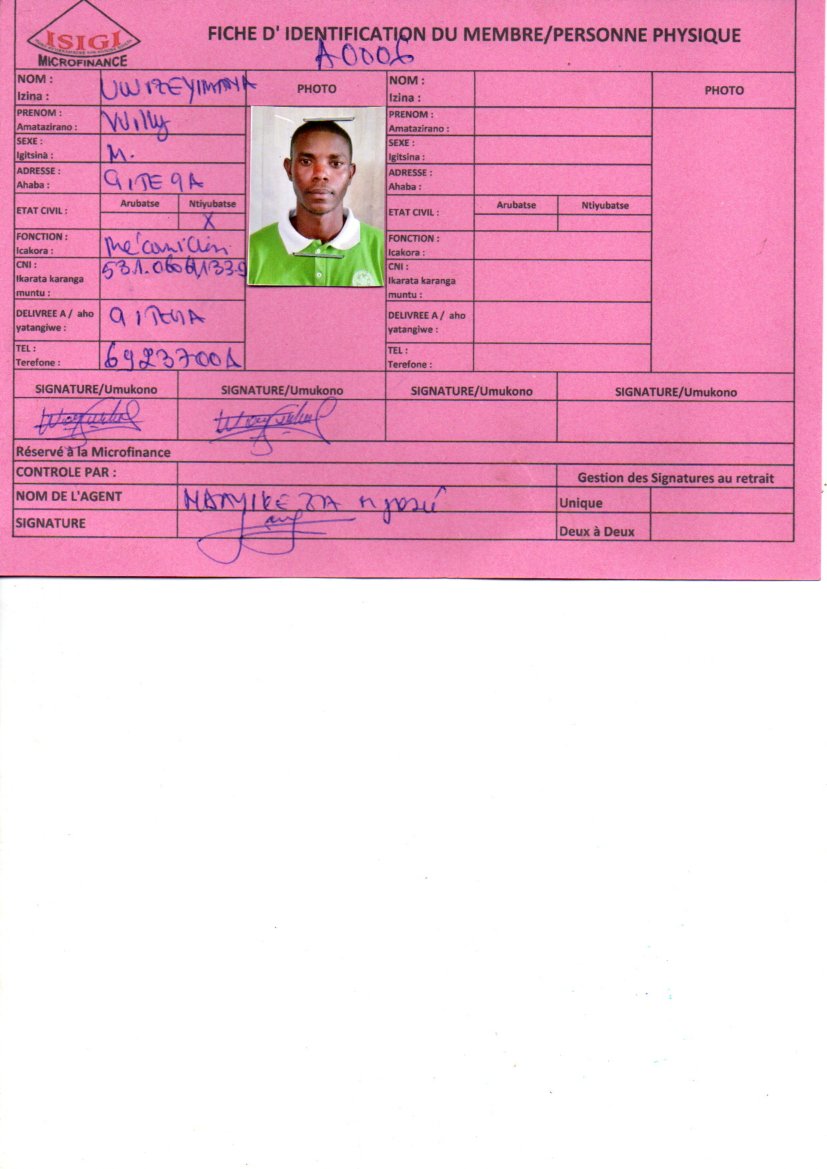 ISIGI
MICROFINANCE
FICHE D' IDENTIFICATION DU MEMBRE/PERSONNE PHYSIQUE
A0006
NOM :
Izina :
UWIZEYIMANA
PHOTO
PRENOM :
Amatazirano :
Willy
SEXE :
Igitsina :
M.
ADRESSE :
Ahaba :
GITEGA
ETAT CIVIL :
Arubatse Ntiyubatse
X
FONCTION :
Icakora :
Mécanicien
CNI :
Ikarata karanga
muntu :
DELIVREE A / aho
yatangiwe :
GITEGA
TEL :
Terefone :
69237001
NOM :
Izina :
PHOTO
PRENOM :
Amatazirano :
SEXE :
Igitsina :
ADRESSE :
Ahaba :
ETAT CIVIL :
Arubatse Ntiyubatse
FONCTION :
Icakora :
CNI :
Ikarata karanga
muntu :
DELIVREE A / aho
yatangiwe :
TEL :
Terefone :
SIGNATURE/Umukono SIGNATURE/Umukono SIGNATURE/Umukono SIGNATURE/Umukono
Réservé à la Microfinance
CONTROLE PAR :
Gestion des Signatures au retrait
NOM DE L'AGENT
Unique
SIGNATURE
Deux à Deux